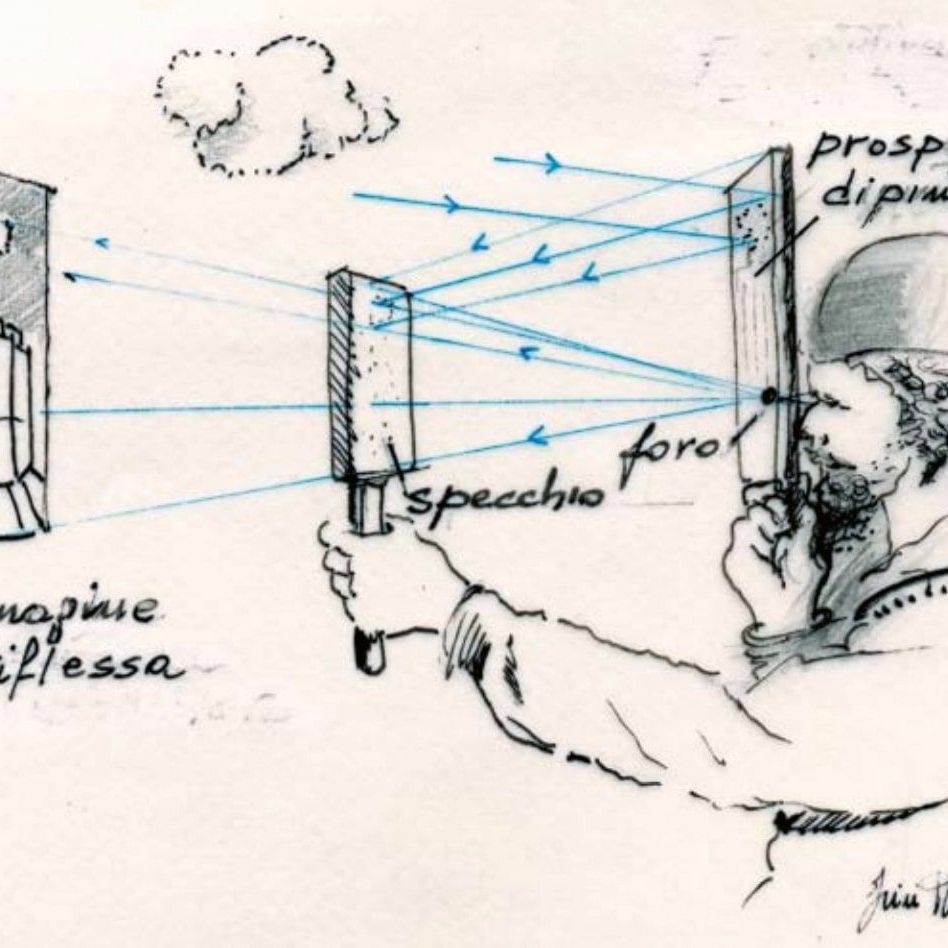 prosp
dipin
foro
specchio
magine
iflessa